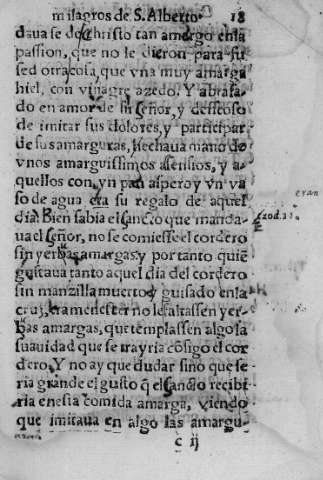 milagros de S. Alberto. 18
daua se de christo tan amargo enla
passion, que no le dieron para su
sed otra cosa, que vna muy amarga
hiel, con vinagre azedo. Y abrasa-
do en amor de su señor, y desseoso
de imitar sus dolores, y participar
de sus amarguras, hechaua mano de
vnos amarguissimos assensios, y a-
quellos con vn pan aspero y vn va
so de agua era su regalo de aquel
dia. Bien sabia el sancto que manda-
ua el señor, no se comiesse el cordero
sin yerbas amargas: y por tanto quiē
gustaua tanto aquel dia del cordero
sin manzilla muerto y guisado enla
cruz, era menester no le faltassen yer-
bas amargas, que templassen algo la
suauidad que se trayria cōsigo el cor
dero. Y no ay que dudar sino que se
ria grande el gusto q̄ el sancto recibi
ria en esta comida amarga, viendo
que imitaua en algo las amargu-
c ij
eran
Exod. 12